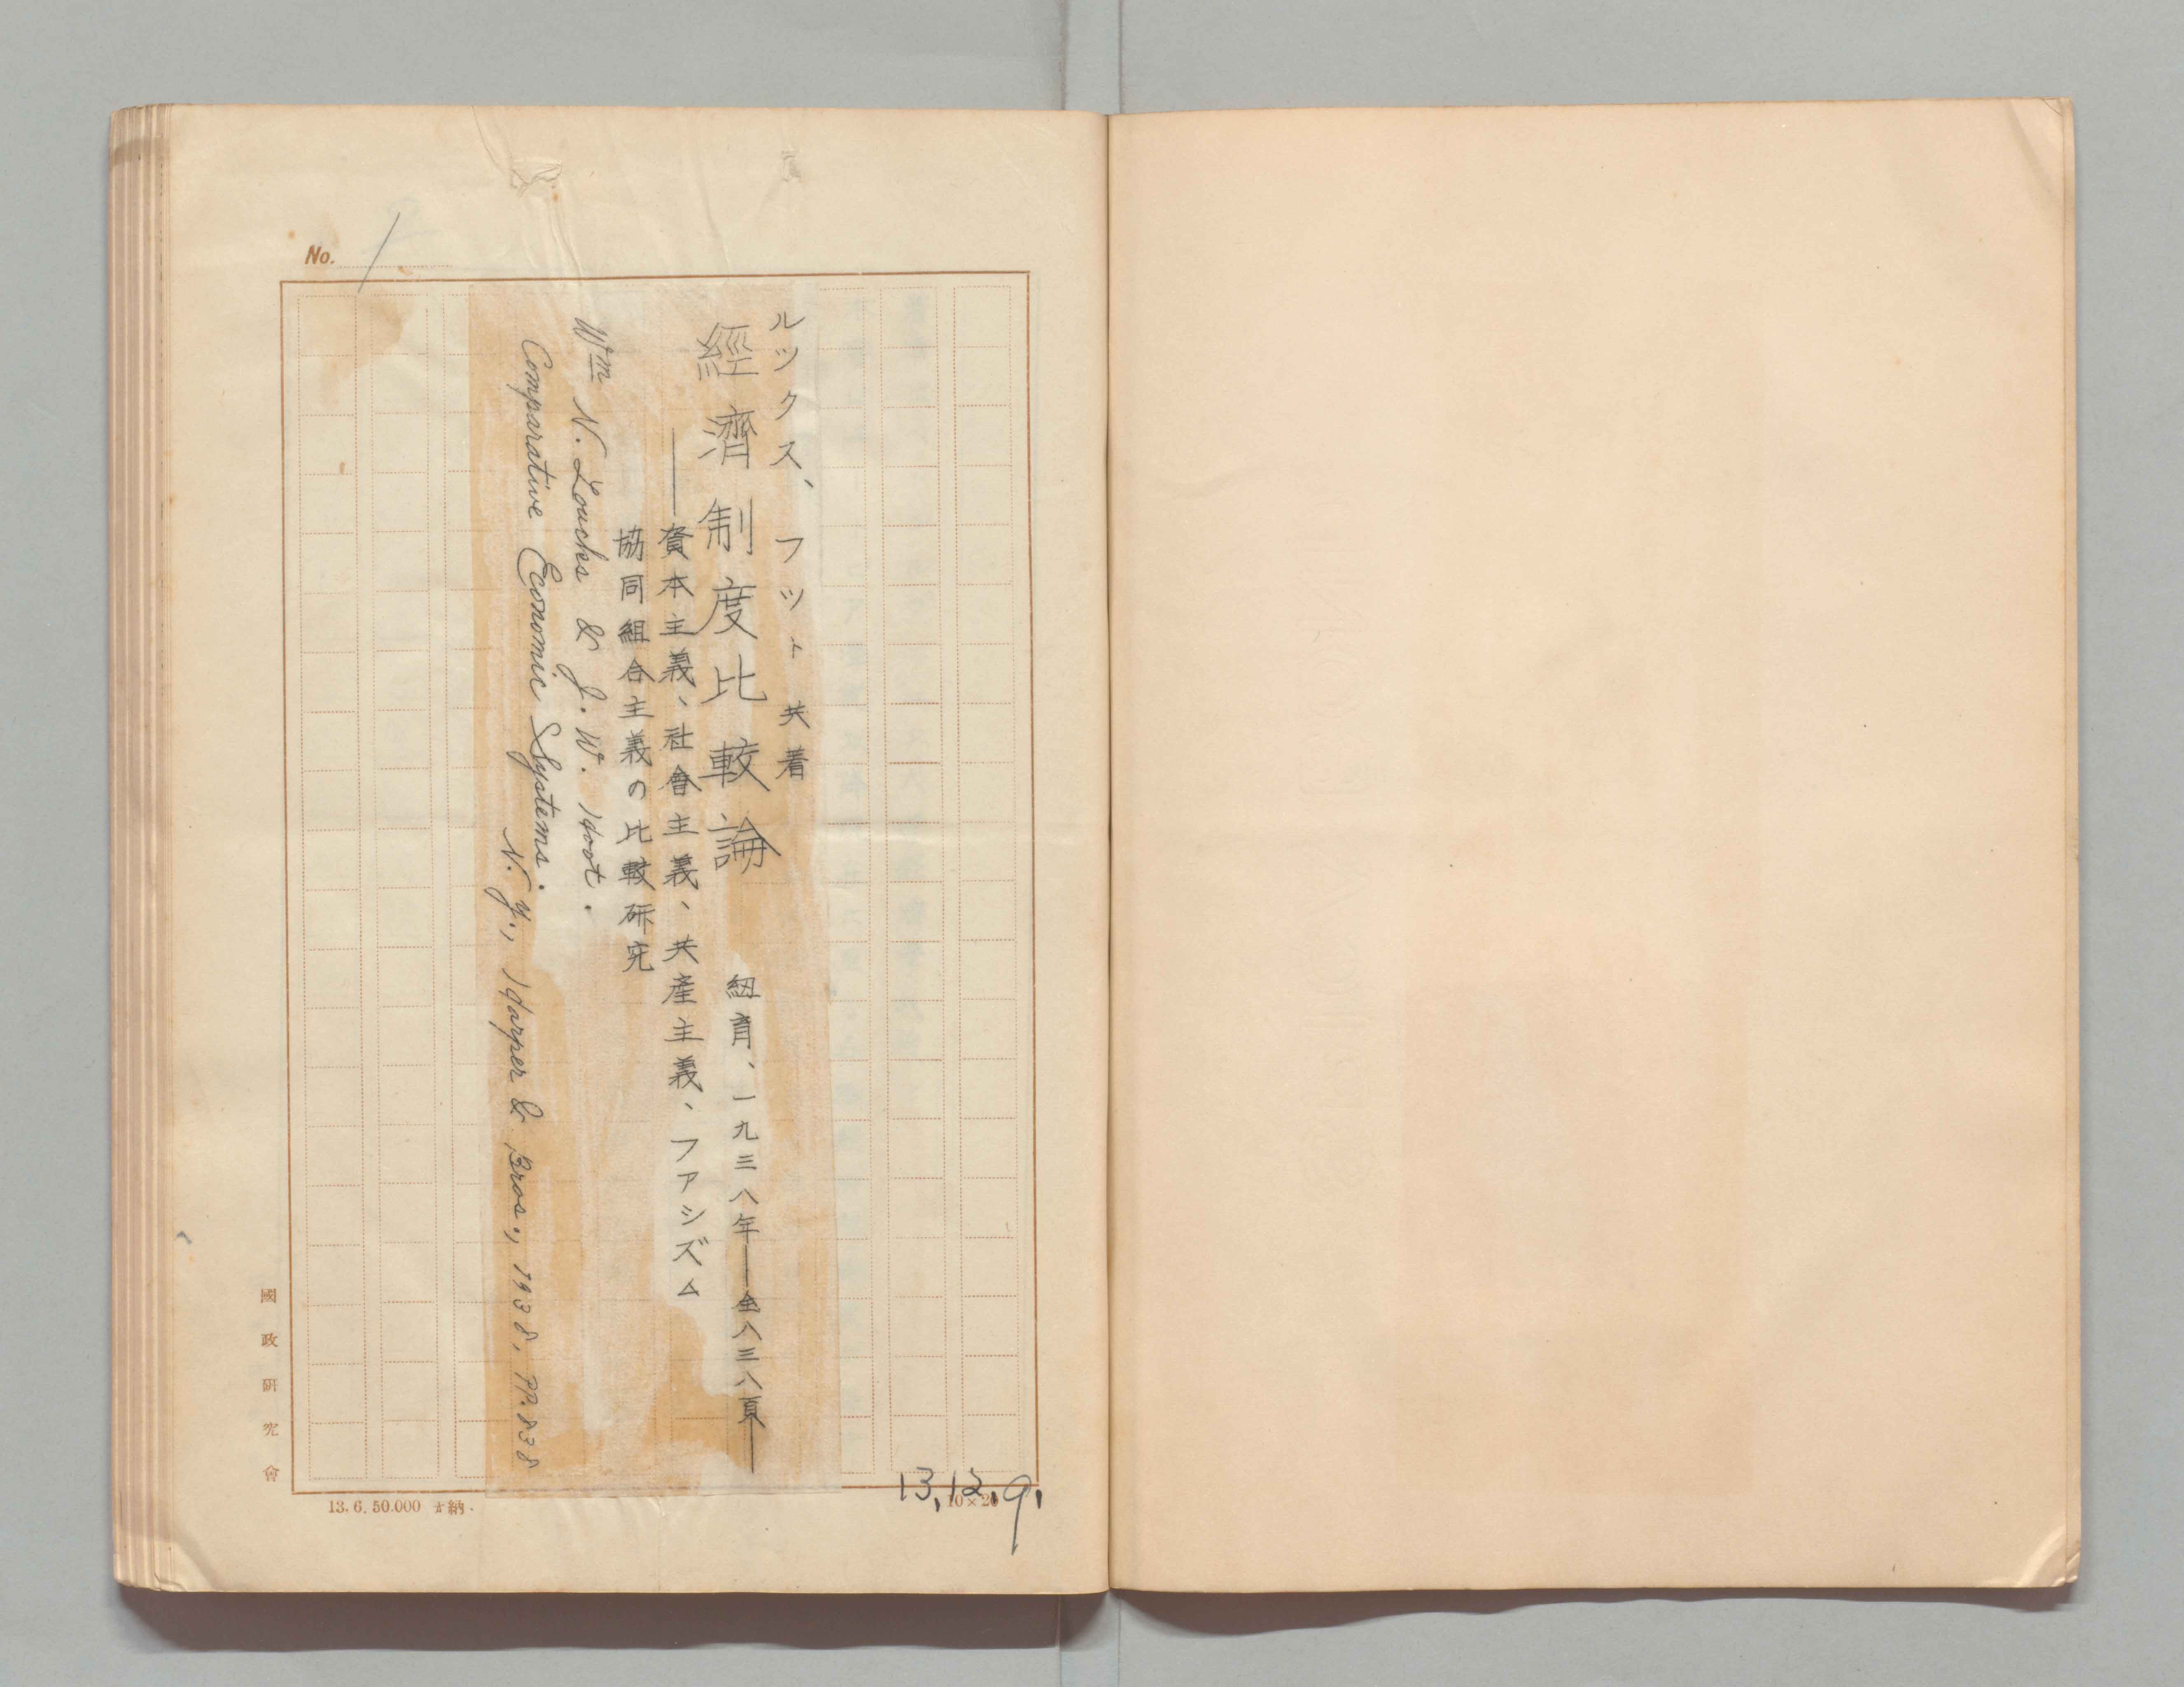 No. 1
ルックス、フット共着
經濟制度比較論
紐育、一九三八年——全八三八頁——
——資本主義、社會主義、共產主義、ファシズム
協同組合主義の比較研究
Wm N. Loucks & J. W. Hoot.
Comparative Economic Systems.
N. Y., Harper & Bros., 1938, PP. 838
國政研究會
13.6.50.000 納
10×20
13.12.9.